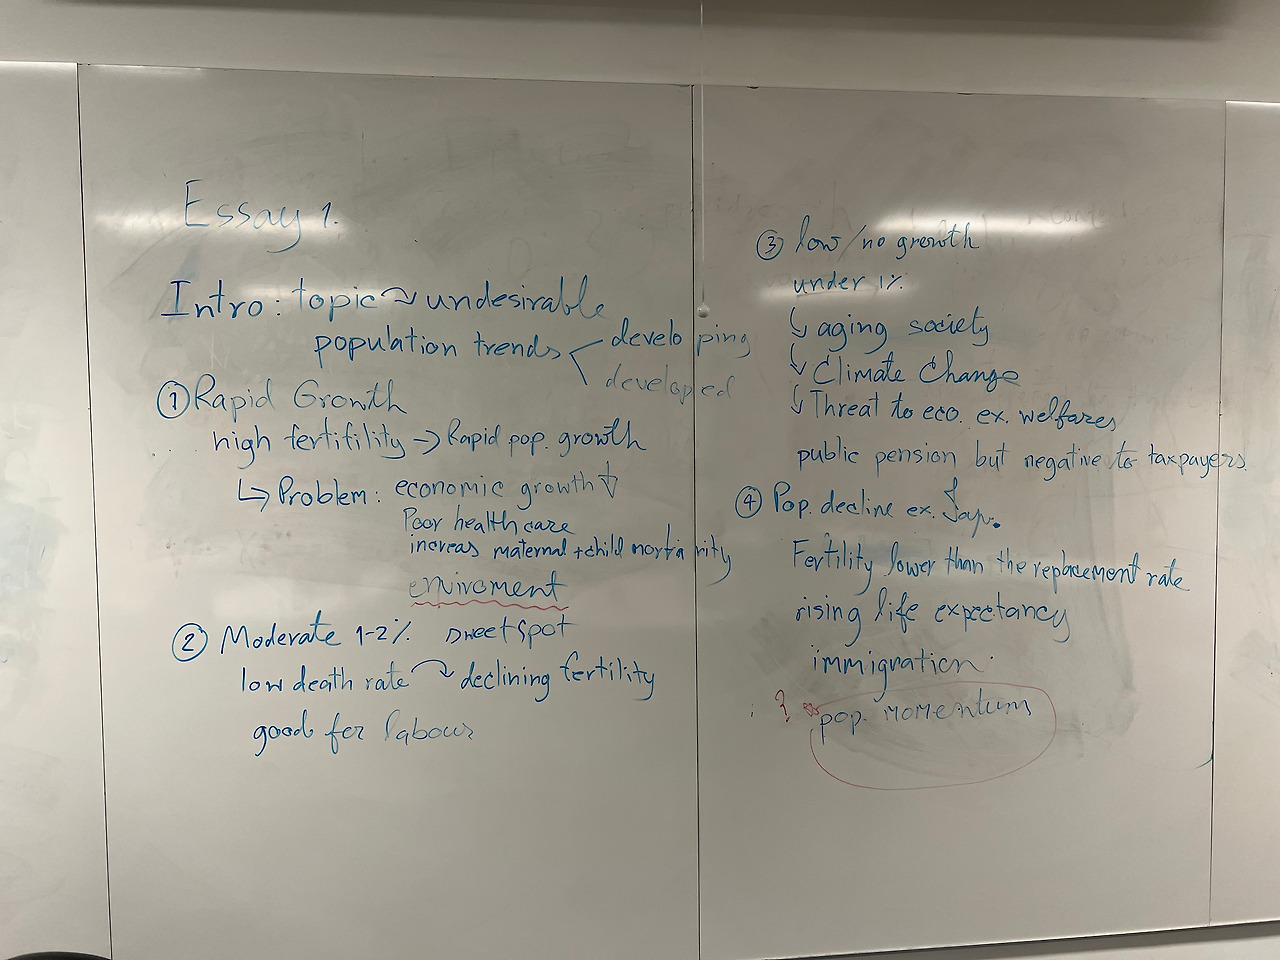 Essay 1.
Intro: topic ~ undesirable
population trends < developing
developed
① Rapid Growth
high fertifility → Rapid pop. growth
↳ Problem: economic growth ↓
Poor health care
increas maternal + child mortarity
enviroment
② Moderate 1-2% sweet spot
low death rate ↷ declining fertility
good for labour
③ low/no growth
under 1%
↳ aging society
↳ Climate Change
↳ Threat to eco. ex. welfares
public pension but negative to taxpayers
④ Pop. decline ex. Jap.
Fertility lower than the replacement rate
rising life expectancy
immigration
? pop. momentum